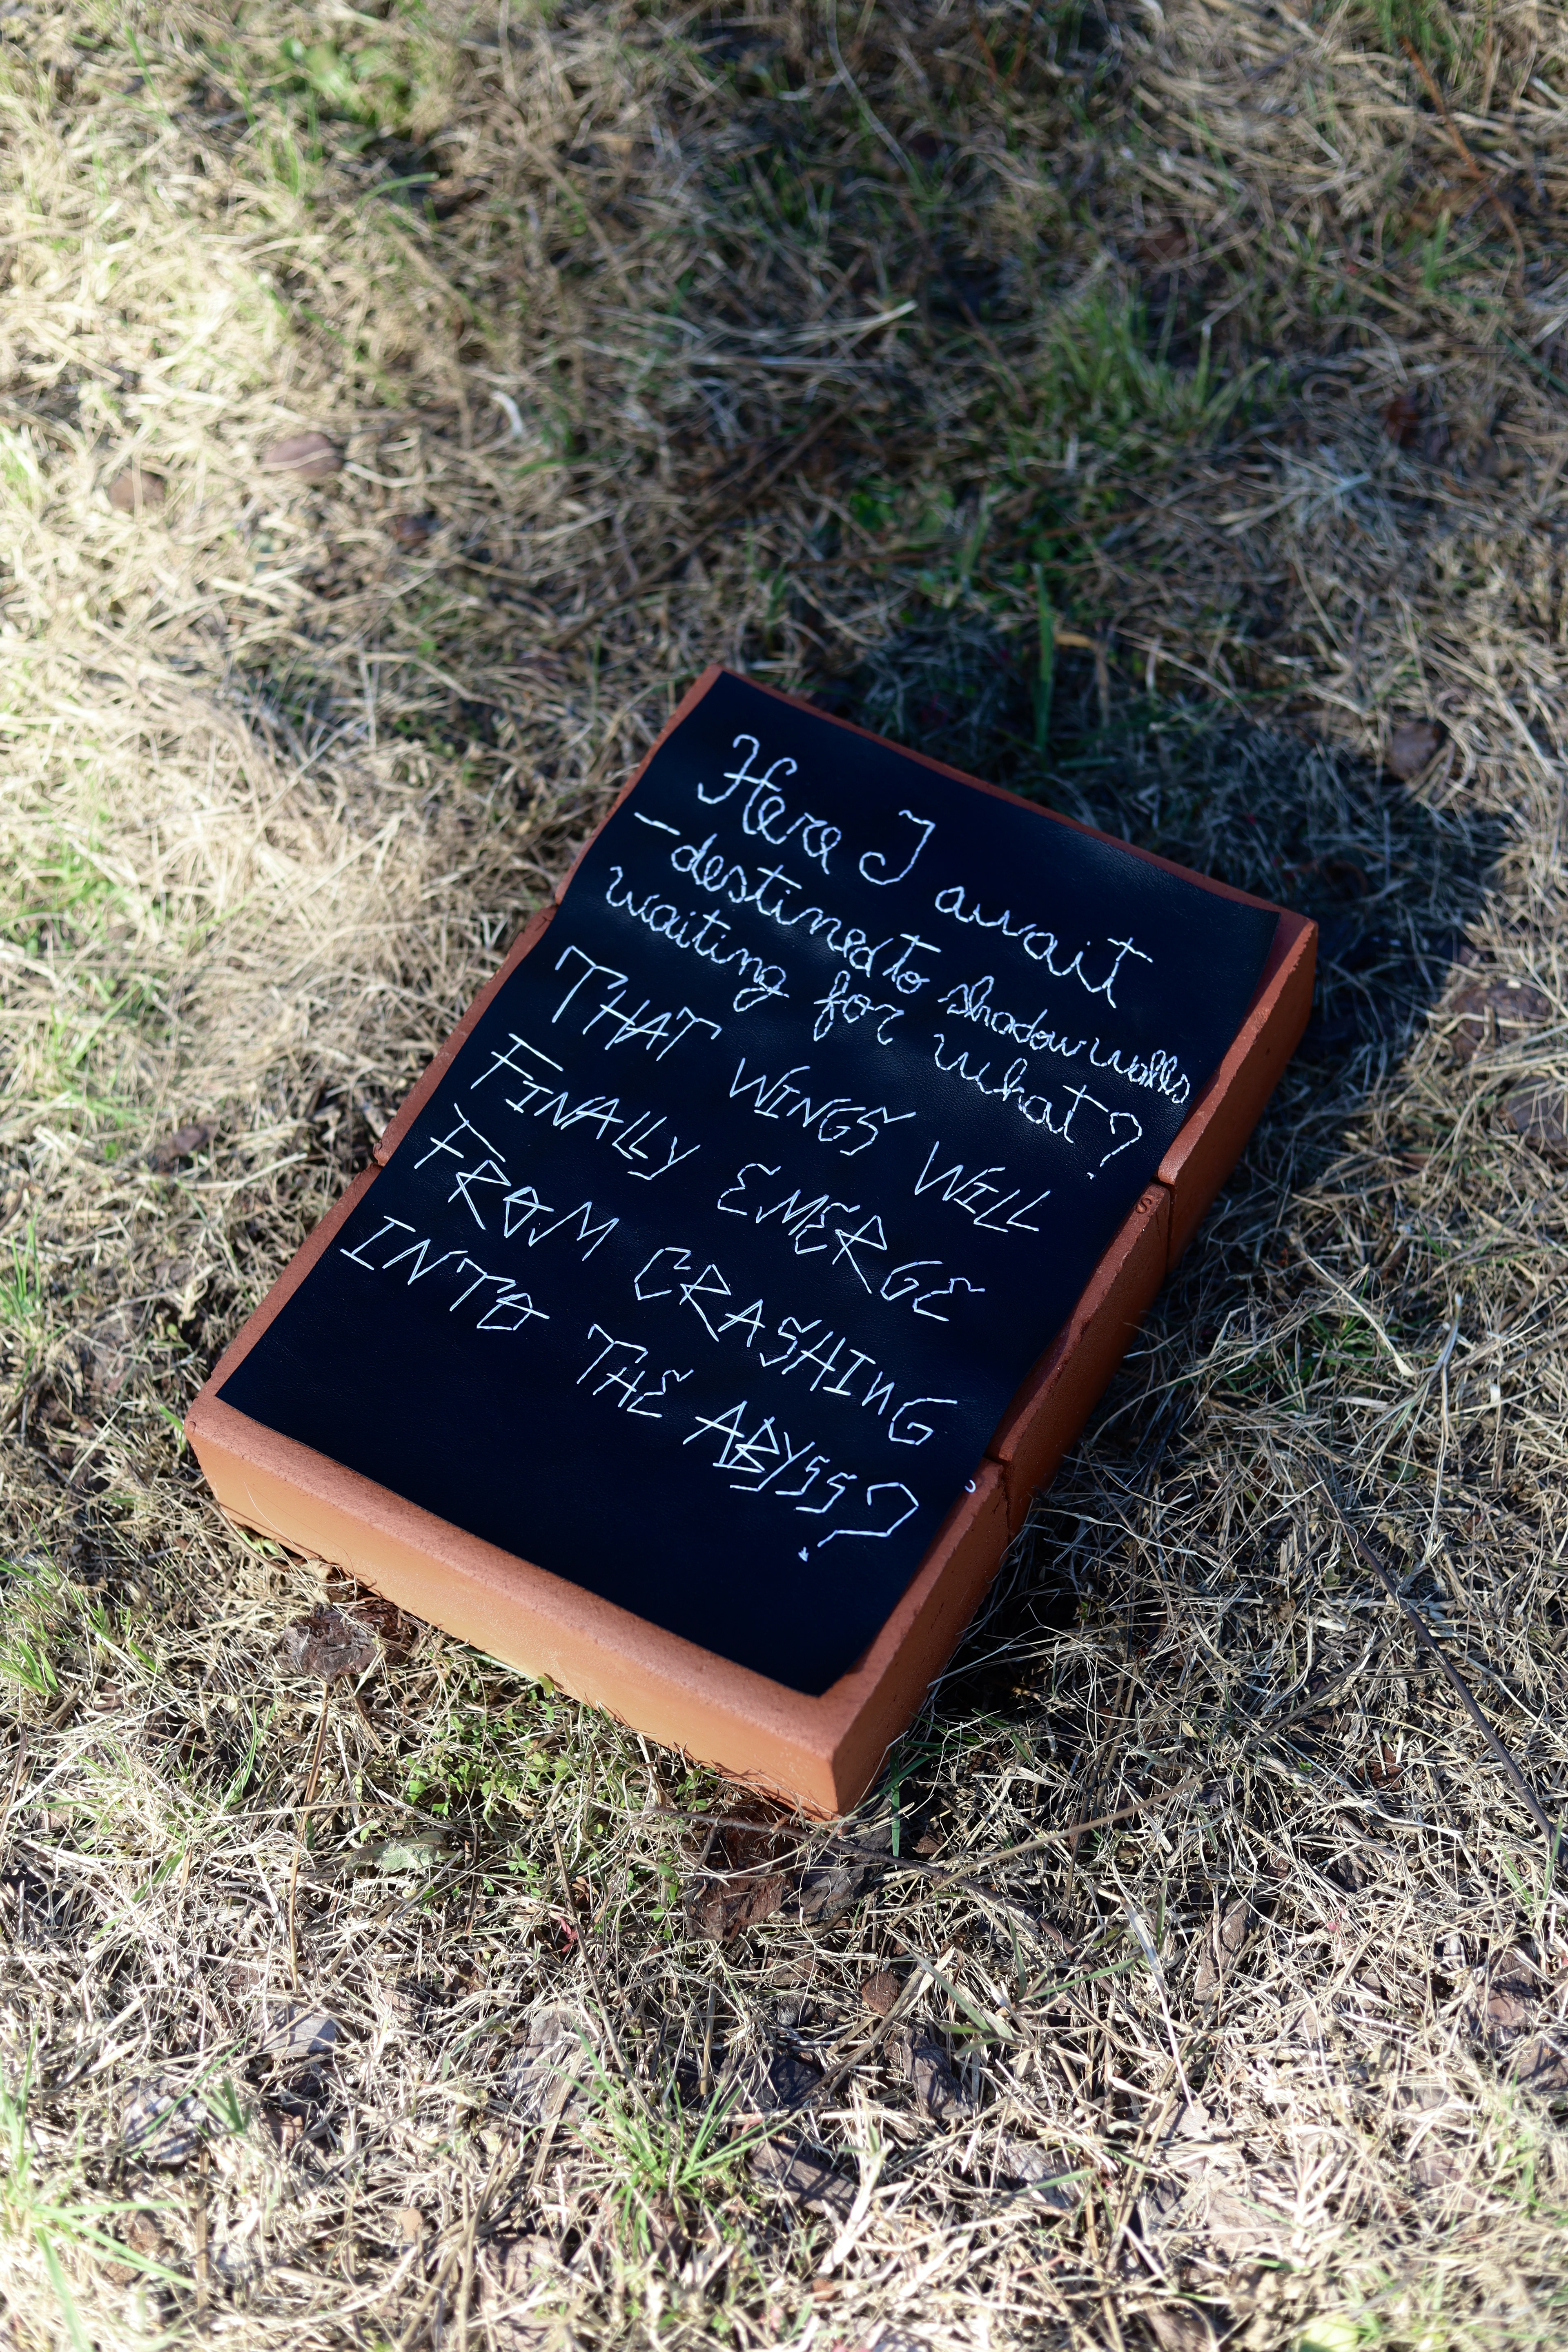 Here I await
—destined to shadow walls
waiting for what?
THAT WINGS WILL
FINALLY EMERGE
FROM CRASHING
INTO THE ABYSS?